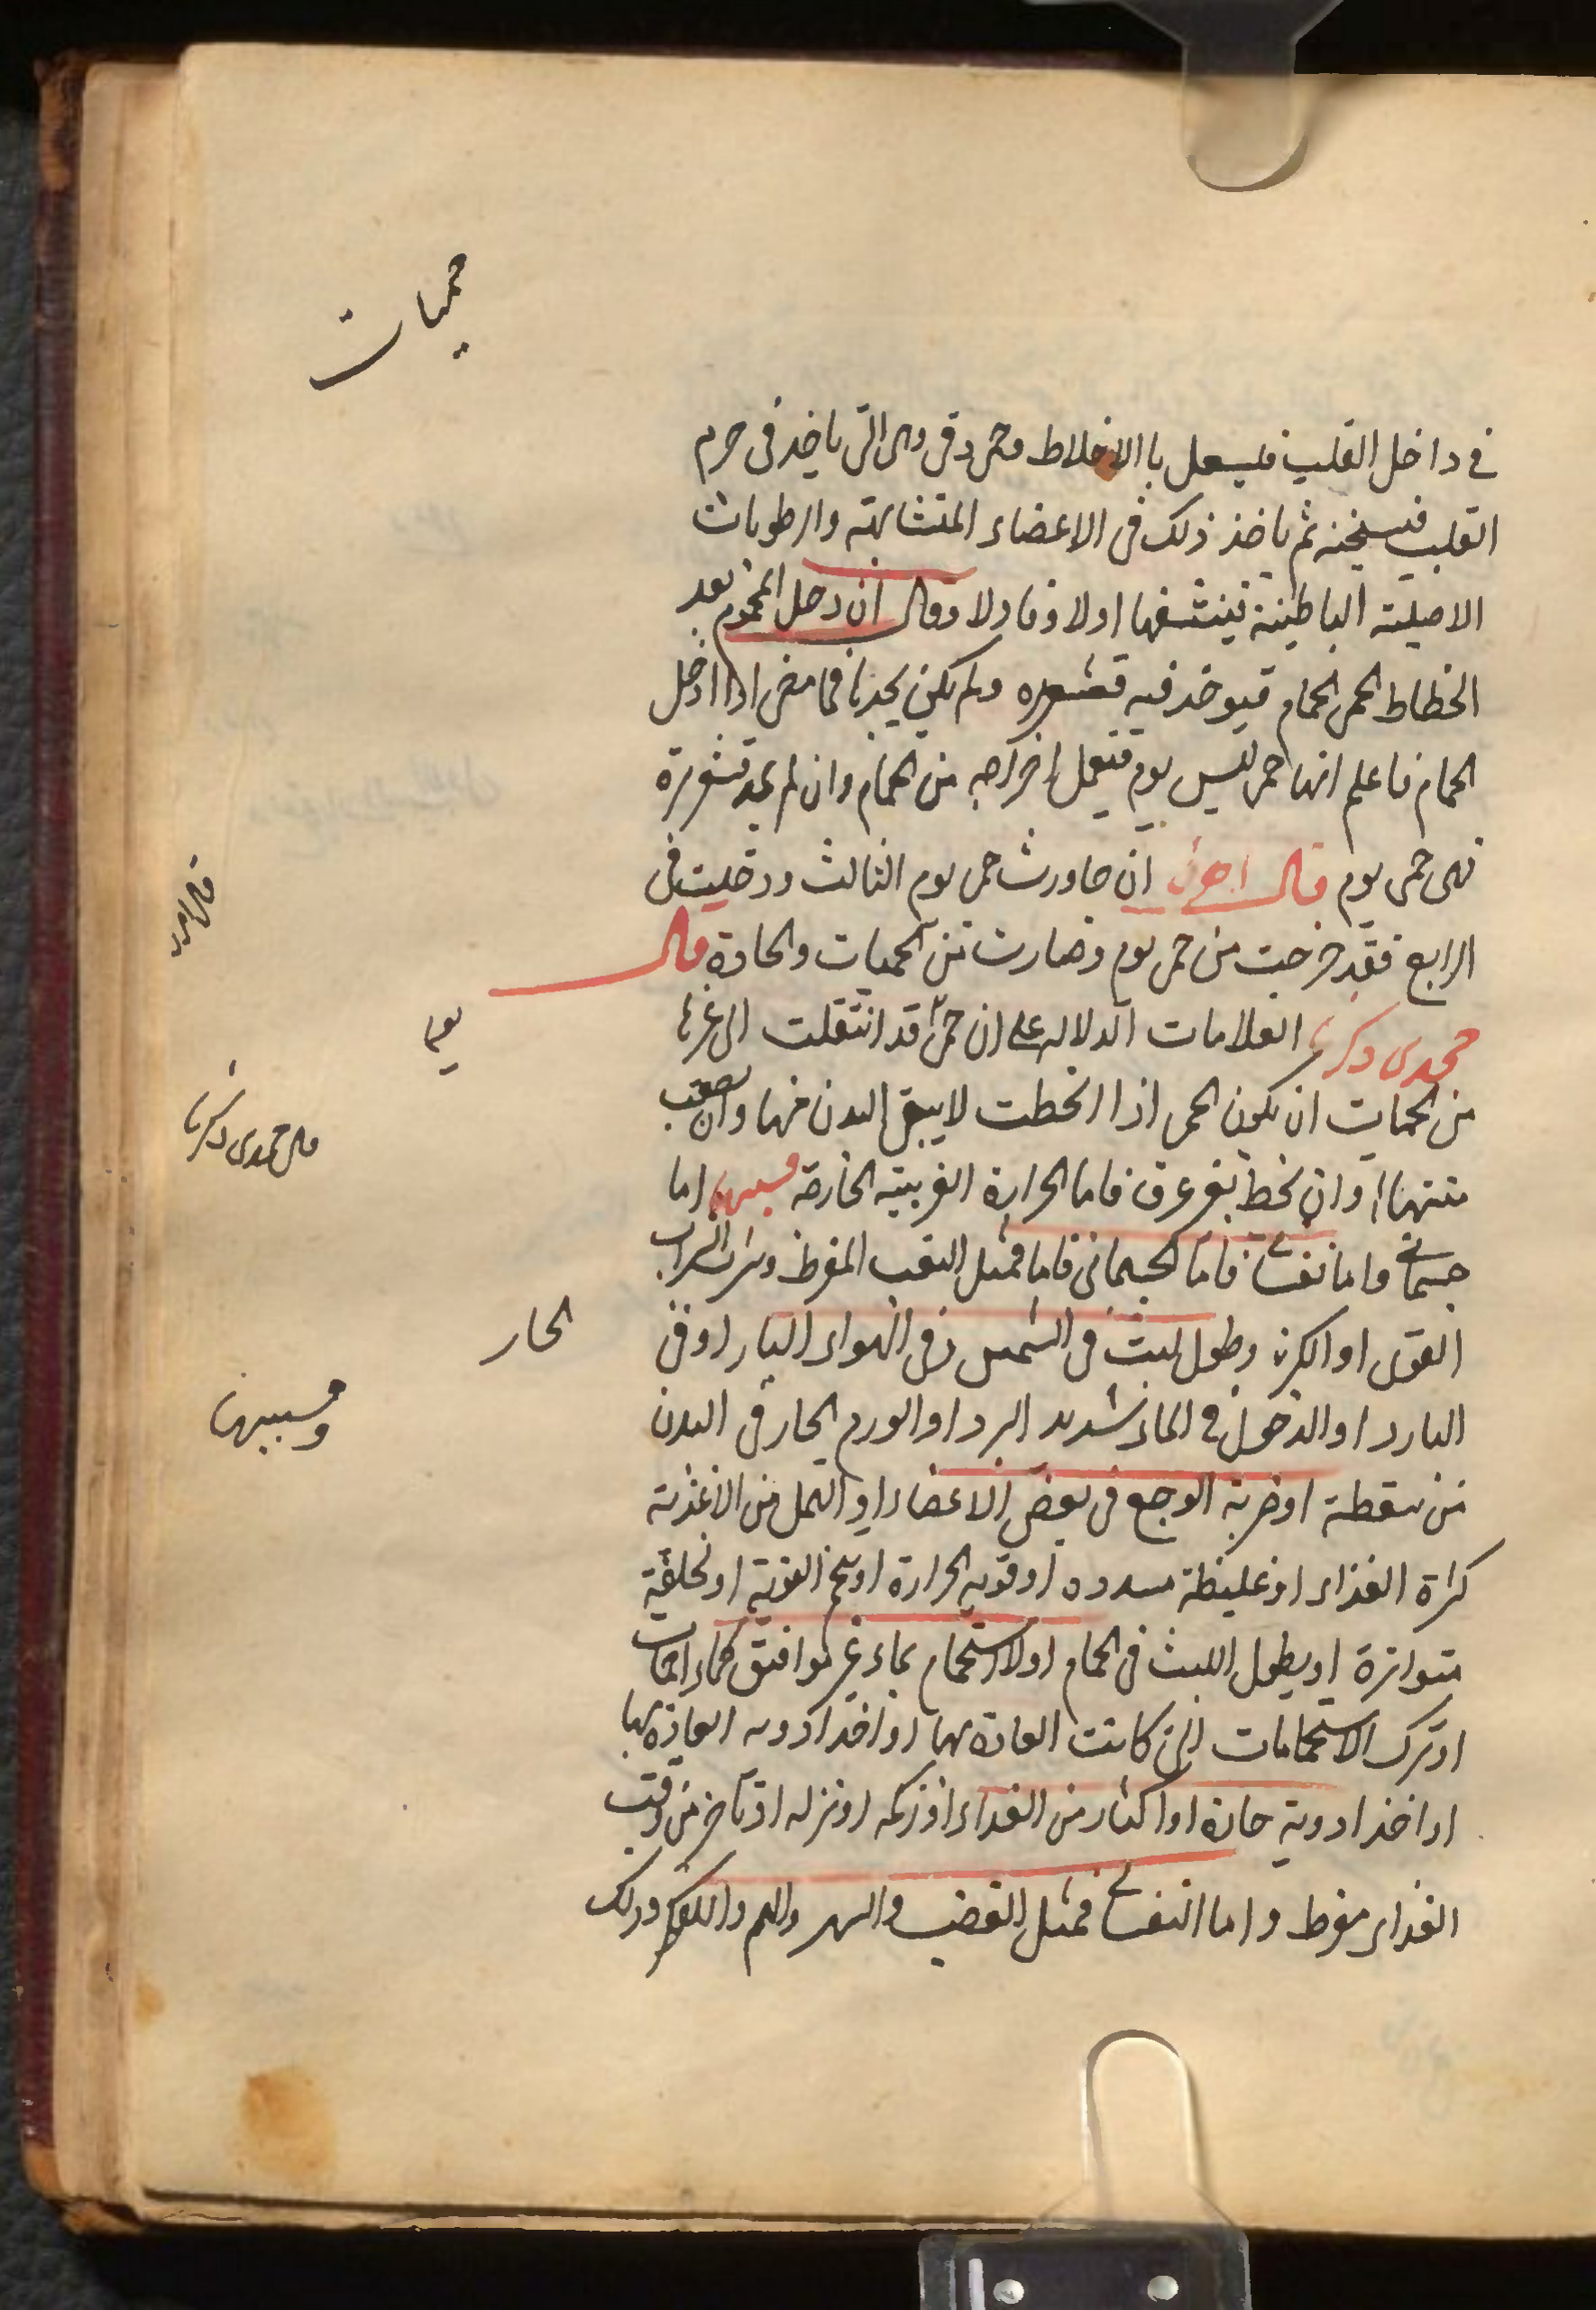 حميات
في داخل القلب فليسعل باالاخلاط وحمى دق وهى التى ياخذ فى جرم
القلب فيسخنه ثم ياخذ ذلك فى الاعضاء المتشابهته والرطوبات
الاصليته الباطينة فينشفها اولا وفاولا وقال ان دخل المحموم بعد
الخطاط الحمى الحمام فيوخذ فيه قشعريره ولم يكن يجدها فما مضى اذا ادخل
الحمام فاعلم انها حمى ليس يوم فتعمل اخراجه من الحمام وان لم يجد قشعريرة
فهى حمى يوم قال ان جاورت حمى يوم الثالث ودخليت فى
الرابع فقد خرجت من حمى يوم وصارت من الحميات والحادة قال
محمدى ذكريا العلامات الدلاله على ان حمى قد انتقلت الى غيرها
يوم
من الحميات ان يكون الحمى اذا انخطت لا يبقى البدن منها وان يصعب
قال محمدى ذكريا
منتهاا وان نخط بغير عرق فاما الحرارة الغربيته الخارجة فسببها اما
جسمانى واما نفسانى فاما الجسمانى فاما فمثل التعب المفرط وشراب الشراب
القوى او الكرب وطول لبث فى الشمس وفى الهواء البار اوفى
الحار
البارد او الدخول فى الماء شديد البرد او الورم الحار فى البدن
وسببها
من سقطة او ضربة الوجع فى بعض الاعضاء او العمل من الاغذية
كراة الغذاء او غليظة مسدده او قوية الحرارة او القوية او تحلقية
متواترة او يطول اللبث فى الحمام اولاستحمام بماء غير موافق كماء
او ترك الاستحمامات التى كانت العادة بها او اخذ ادويه العادة بها
او اخذ ادوية حادة او اكثار من الغداء او زكمه او نزله او تاخر من وقت
الغذاء مفرط واما النفسانى فمثل الغضب والسهر والهم والفكر وذلك